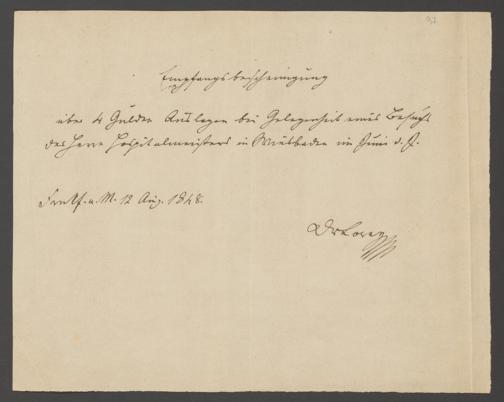 Empfangsbescheinigung
über 4 Gulden Auslagen bei Gelegenheit eines Besuchs
des Herrn Hospitalmeisters in Wiesbaden im Juni d. J.
Frankf. a. M. 12 Aug. 1848.
Dr Lorey